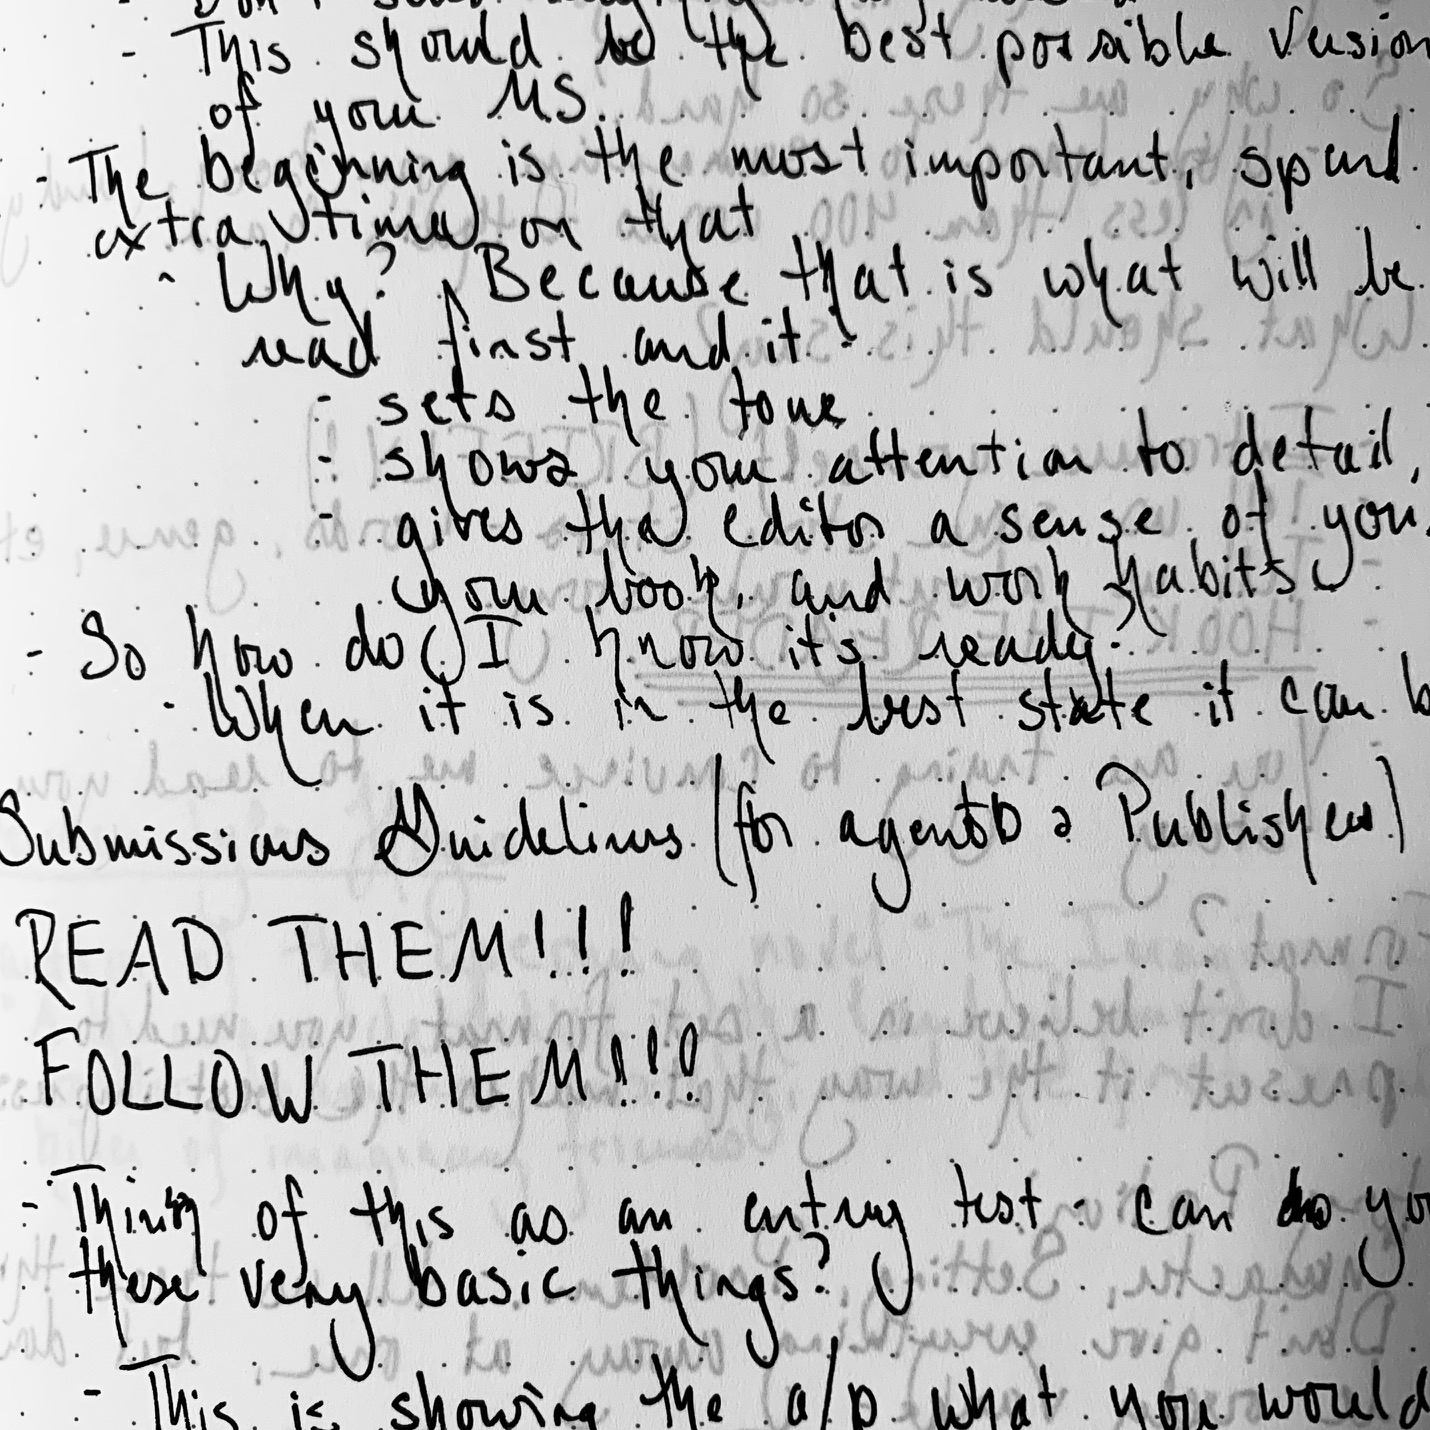 - This should be the best possible version
of your MS.
- The beginning is the most important, spend
extra time on that
- Why? Because that is what will be
read first and it -
- sets the tone
- shows your attention to detail,
- gives the editor a sense of you,
your book, and work habits
- So how do I know it's ready?
- When it is in the best state it can b
Submissions Guidelines (for agents & Publishers)
READ THEM!!!
FOLLOW THEM!!!
- Think of this as an entry test - can do yo
these very basic things?
- This is showing the a/p what you would